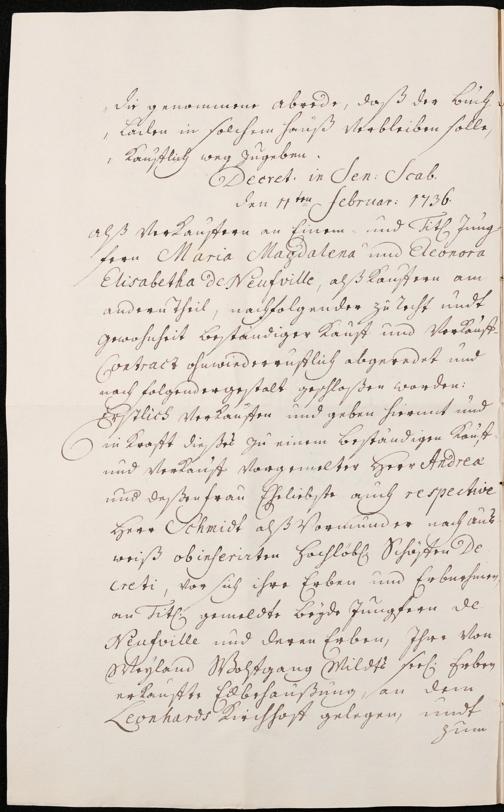 , die genommene abrede, daß der Buch-
, Laden in solchem Hauß verbleiben solle,
, Käufflich weg zugeben.
Decret: in Sen: Scab.
den 11ten Februar: 1736.
alß Verkäuffern an Einem- und Titl Jung-
fern Maria Magdalena und Eleonora
Elisabetha de Neufville, alß Käuffern am
andern Theil, nachfolgender zu recht undt
gewohnheit beständiger Kauff und Verkauff-
Contract ohnwiederrufflich abgeredet und
nach folgendergestalt geschloßen worden:
Erstlich Verkauffen und geben hiermit und
in Krafft dießes zu einem beständigen Kauff-
und Verkauff vorgemelter Herr Andreæ
und deßen frau Eheliebste auch respective
Herr Schmidt alß Vormünder nach auß
weiß obinserirten Hochlöbl. Schöffen De
creti, vor sich ihre Erben und Erbnehmen,
an Titl gemeldte beyde Jungfern de
Neufville und deren Erben, Ihre von
Weyland Wolffgang Wildts seel. Erben
erkauffte Eckbehaußung, an dem
Leonhards Kirchhoff gelegen, undt
zum